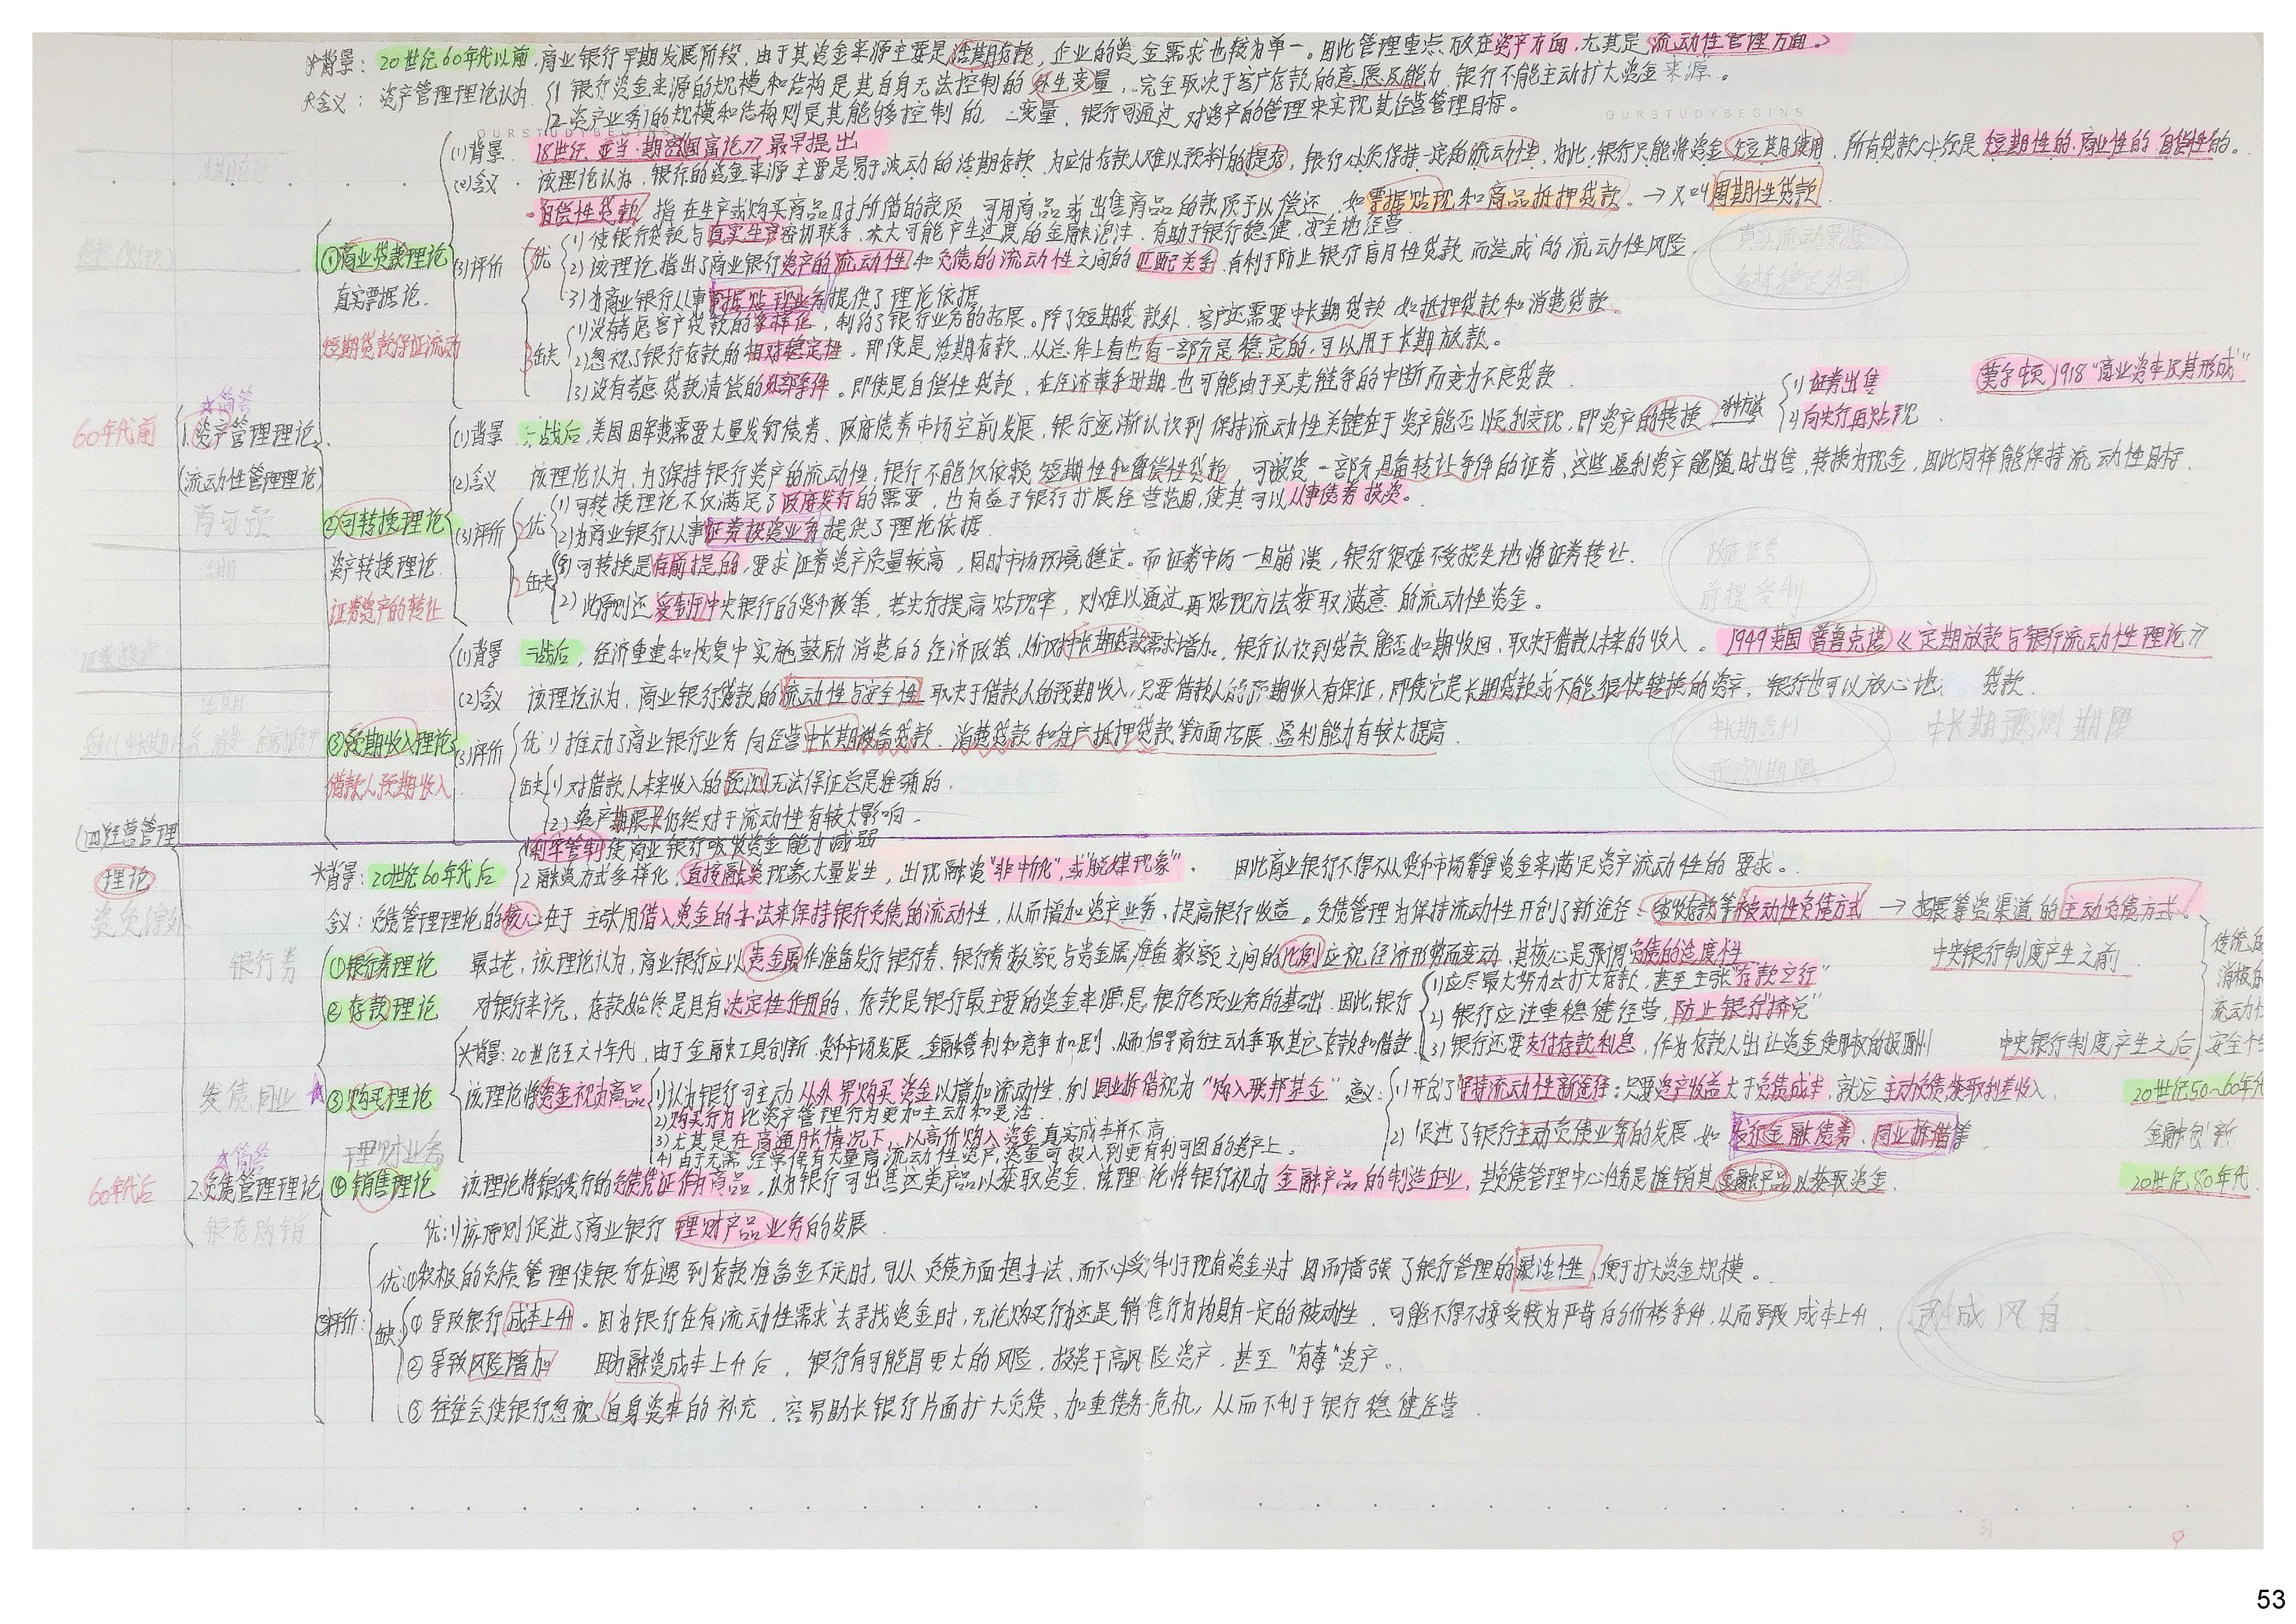 *背景：20世纪60年代以前，商业银行早期发展阶段，由于其资金来源主要是活期存款，企业的资金需求也较为单一。因此管理重点放在资产方面，尤其是流动性管理方面。
*含义：资产管理理论认为
1 银行资金来源的规模和结构是其自身无法控制的外生变量，完全取决于客户存款的意愿及能力，银行不能主动扩大资金来源。
2 资产业务的规模和结构则是其能够控制的变量，银行可通过对资产的管理来实现其经营管理目标。
OURSTUDYBEGINS
OURSTUDYBEGINS
(四)经营管理理论
60年代前
☆简答
1.资产管理理论
(流动性管理理论)
商可预
①商业贷款理论
真实票据论.
短期贷款保证流动
(1)背景 18世纪 亚当·斯密《国富论》最早提出
(2)含义 该理论认为，银行的资金来源主要是易于波动的活期存款，为应付存款人难以预料的提存，银行必须保持一定的流动性，为此，银行只能将资金短期使用，所有贷款必须是短期性的、商业性的、自偿性的。
自偿性贷款，指在生产或购买商品时所借的款项，可用商品或出售商品的款项予以偿还，如票据贴现和商品抵押贷款。→又叫周期性贷款.
(3)评价
优
1) 使银行贷款与真实生产密切联系，不大可能产生过度的金融泡沫，有助于银行稳健、安全地经营
2) 该理论指出了商业银行资产的流动性和负债的流动性之间的匹配关系，有利于防止银行盲目性贷款而造成的流动性风险
3) 为商业银行从事票据贴现业务提供了理论依据
3缺
1) 没有考虑客户贷款的多样化，制约了银行业务的拓展。除了短期贷款外，客户还需要中长期贷款如抵押贷款和消费贷款。
2) 忽视了银行存款的相对稳定性。即使是活期存款，从总体上看也有一部分是稳定的，可以用于长期放款。
3) 没有考虑贷款清偿的外部条件。即使是自偿性贷款，在经济萧条时期也可能由于买卖链条的中断而变为不良贷款
②可转换理论
资产转换理论
证券资产的转让
(1)背景 一战后，美国因军费需要大量发行债券、政府债券市场空前发展，银行逐渐认识到保持流动性关键在于资产能否顺利变现，即资产的转换
1) 证券出售
2) 向央行再贴现
莫尔顿1918“商业资本及其形成”
(2)含义 该理论认为，为了保持银行资产的流动性，银行不能仅依赖短期性和自偿性贷款，可投资一部分具备转让条件的证券，这些盈利资产能随时出售，转换为现金，因此同样能保持流动性目标.
(3)评价
2优
1) 可转换理论不仅满足了政府发行的需要，也有益于银行扩展经营范围，使其可以从事债券投资。
2) 为商业银行从事证券投资业务提供了理论依据
2缺
1) 可转换是有前提的，要求证券资产质量较高，同时市场环境稳定。而证券市场一旦崩溃，银行很难不受损失地将证券转让.
2) 此原则还受制于中央银行的货币政策，若央行提高贴现率，则难以通过再贴现方法获取满意的流动性资金。
前提受制
③预期收入理论
借款人预期收入
(1)背景 二战后，经济重建和恢复中实施鼓励消费的经济政策，人们对中长期贷款需求增加，银行认识到贷款能否如期收回，取决于借款人未来的收入。1949美国 普鲁克诺《定期放款与银行流动性理论》
(2)含义 该理论认为，商业银行贷款的流动性与安全性取决于借款人的预期收入，只要借款人的预期收入有保证，即使它是长期贷款或不能很快转换的资产，银行也可以放心地 贷款.
(3)评价
优 1) 推动了商业银行业务向经营中长期设备贷款、消费贷款和房产抵押贷款等方面拓展，盈利能力有较大提高.
缺 1) 对借款人未来收入的预测无法保证总是准确的.
2) 资产期限长仍然对于流动性有较大影响.
中长期 预测 期限
60年代后
☆简答
2.负债管理理论
银存购销
*背景：20世纪60年代后
1 利率管制使商业银行吸收资金能力减弱
2 融资方式多样化，直接融资现象大量发生，出现融资“非中介化”或“脱媒现象”。
因此商业银行不得不从货币市场筹集资金来满足资产流动性的要求。
含义：负债管理理论的核心在于主张用借入资金的办法来保持银行负债的流动性，从而增加资产业务，提高银行收益。负债管理为保持流动性开创了新途径：吸收存款等被动性负债方式→拓展筹资渠道的主动负债方式。
①银行券理论 最古老，该理论认为，商业银行应以贵金属作准备发行银行券、银行券数额与贵金属准备数额之间的比例应视经济形势而变动，其核心是强调负债的适度性 中央银行制度产生之前.
②存款理论 对银行来说，存款始终是具有决定性作用的，存款是银行最主要的资金来源，是银行各项业务的基础，因此，银行
1) 应尽最大努力去扩大存款，甚至主张“存款立行”
2) 银行应注重稳健经营，防止银行“挤兑”
3) 银行还要支付存款利息，作为存款人出让资金使用权的报酬 中央银行制度产生之后
③购买理论
*背景：20世纪五六十年代，由于金融工具创新、货币市场发展、金融管制和竞争加剧，从而倡导商行主动争取其它存款和借款.
该理论将资金视为商品
1) 认为银行可主动从外界购买资金以增加流动性，例 同业拆借视为“购入联邦基金”
2) 购买行为比资产管理行为更加主动和灵活
3) 尤其是在高通胀情况下，以高价购入资金真实成本并不高
4) 由于无需经常保有大量高流动性资产，资金可投入到更有利可图的资产上。
意义：
1) 开创了保持流动性新途径：只要资产收益大于负债成本，就应主动负债，获取利差收入.
2) 促进了银行主动负债业务的发展，如发行金融债券、同业拆借等
20世纪50~60年代
金融创新
理财业务
④销售理论 该理论将银行发行的负债凭证作为商品，认为银行可出售这类产品以获取资金，该理论将银行视为金融产品的制造企业，其负债管理中心任务是推销其金融产品以获取资金.
20世纪80年代
优：1) 该原则促进了商业银行理财产品业务的发展
③评价：
优：①积极的负债管理使银行在遇到存款准备金不足时，可从负债方面想办法，而不必受制于现有资金头寸，因而增强了银行管理的灵活性，便于扩大资金规模。
缺
① 导致银行成本上升。因为银行在有流动性需求去寻找资金时，无论购买行为还是销售行为均具有一定的被动性，可能不得不接受较为严苛的价格条件，从而导致成本上升.
② 导致风险增加 因为融资成本上升后，银行有可能冒更大的风险，投资于高风险资产，甚至“有毒”资产。
③ 往往会使银行忽视自身资本的补充，容易助长银行片面扩大负债、加重债务危机，从而不利于银行稳健经营
灵 成 风 自
53